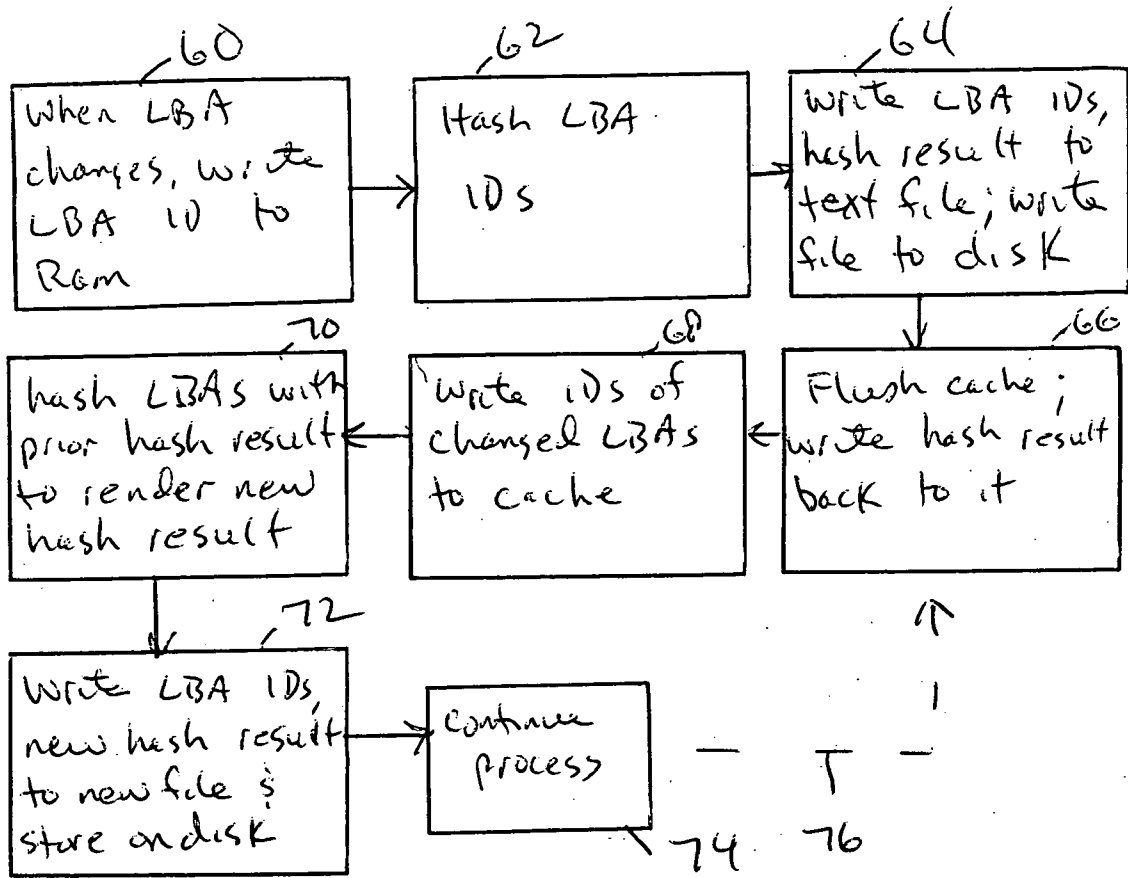 60
When LBA
changes, write
LBA ID to
Ram
62
Hash LBA
IDs
64
Write LBA IDs,
hash result to
text file; write
file to disk
66
Flush cache;
write hash result
back to it
68
Write IDs of
changed LBAs
to cache
70
hash LBAs with
prior hash result
to render new
hash result
72
Write LBA IDs,
new hash result
to new file &
store on disk
continue
process
74
76